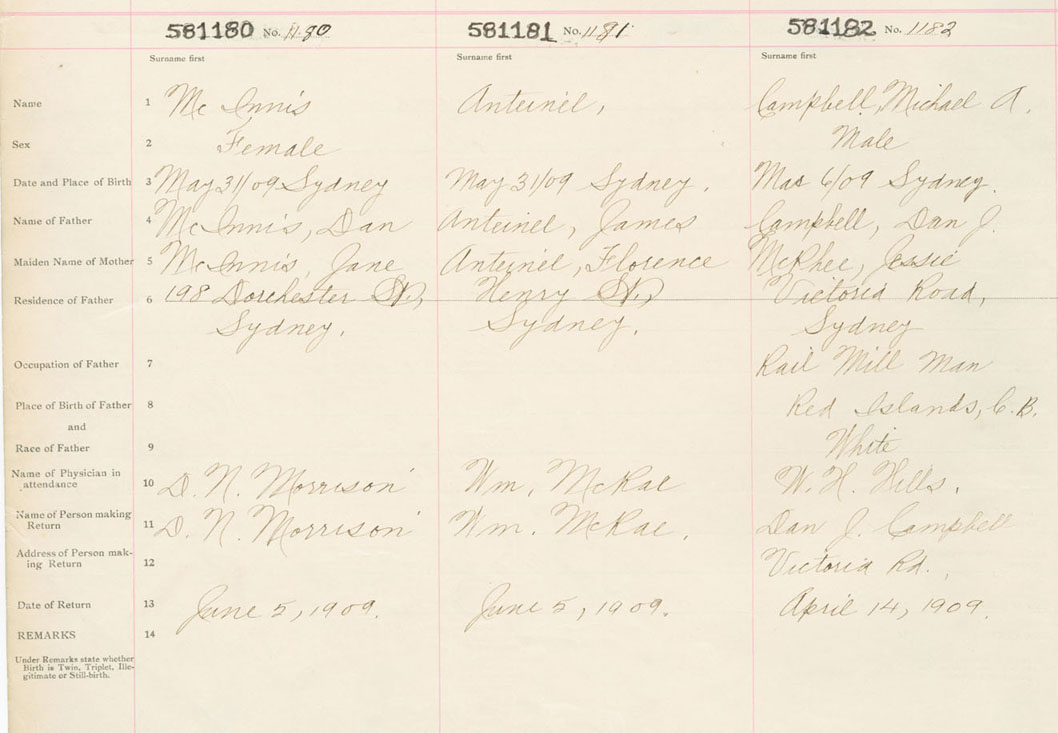 581180 No. 1180 581181 No. 1181 581182 No. 1182
Surname first Surname first Surname first
Name 1 Mc Innis Anteinel, Campbell, Michael A.
Sex 2 Female Male
Date and Place of Birth 3 May 31/09 Sydney May 31/09 Sydney. Mar 6/09 Sydney.
Name of Father 4 McInnis, Dan Anteinel, James Campbell, Dan J.
Maiden Name of Mother 5 McInnis, Jane Anteinel, Florence McPhee, Jessie
Residence of Father 6 198 Dorchester St., Henry St., Victoria Road,
Sydney. Sydney. Sydney
Occupation of Father 7 Rail Mill Man
Place of Birth of Father 8 Red Islands, C.B.
and
Race of Father 9 White
Name of Physician in
attendance 10 D. N. Morrison Wm. McRae W. H. Hills.
Name of Person making
Return 11 D. N. Morrison Wm. McRae. Dan J. Campbell
Address of Person mak-
ing Return 12 Victoria Rd.,
Date of Return 13 June 5, 1909. June 5, 1909. April 14, 1909.
REMARKS 14
Under Remarks state whether
Birth is Twin, Triplet, Ille-
gitimate or Still-birth.